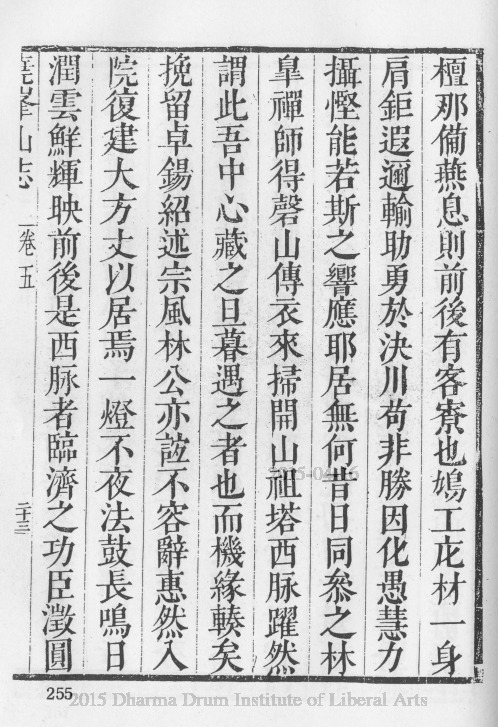 檀那備燕息則前後有客寮也鳩工庀材一身
肩鉅遐邇輸助勇於決川苟非勝因化愚慧力
攝慳能若斯之響應耶居無何昔日同叅之林
臯禪師得磬山傳衣來掃開山祖塔西脉躍然
謂此吾中心藏之旦暮遇之者也而機緣輳矣
挽留卓錫紹述宗風林公亦誼不容辭惠然入
院復建大方丈以居焉一燈不夜法鼓長鳴日
潤雲鮮輝映前後是西脉者臨濟之功臣澂圓
堯峯山志 卷五 二十三
255
2015-04-16
2015 Dharma Drum Institute of Liberal Arts